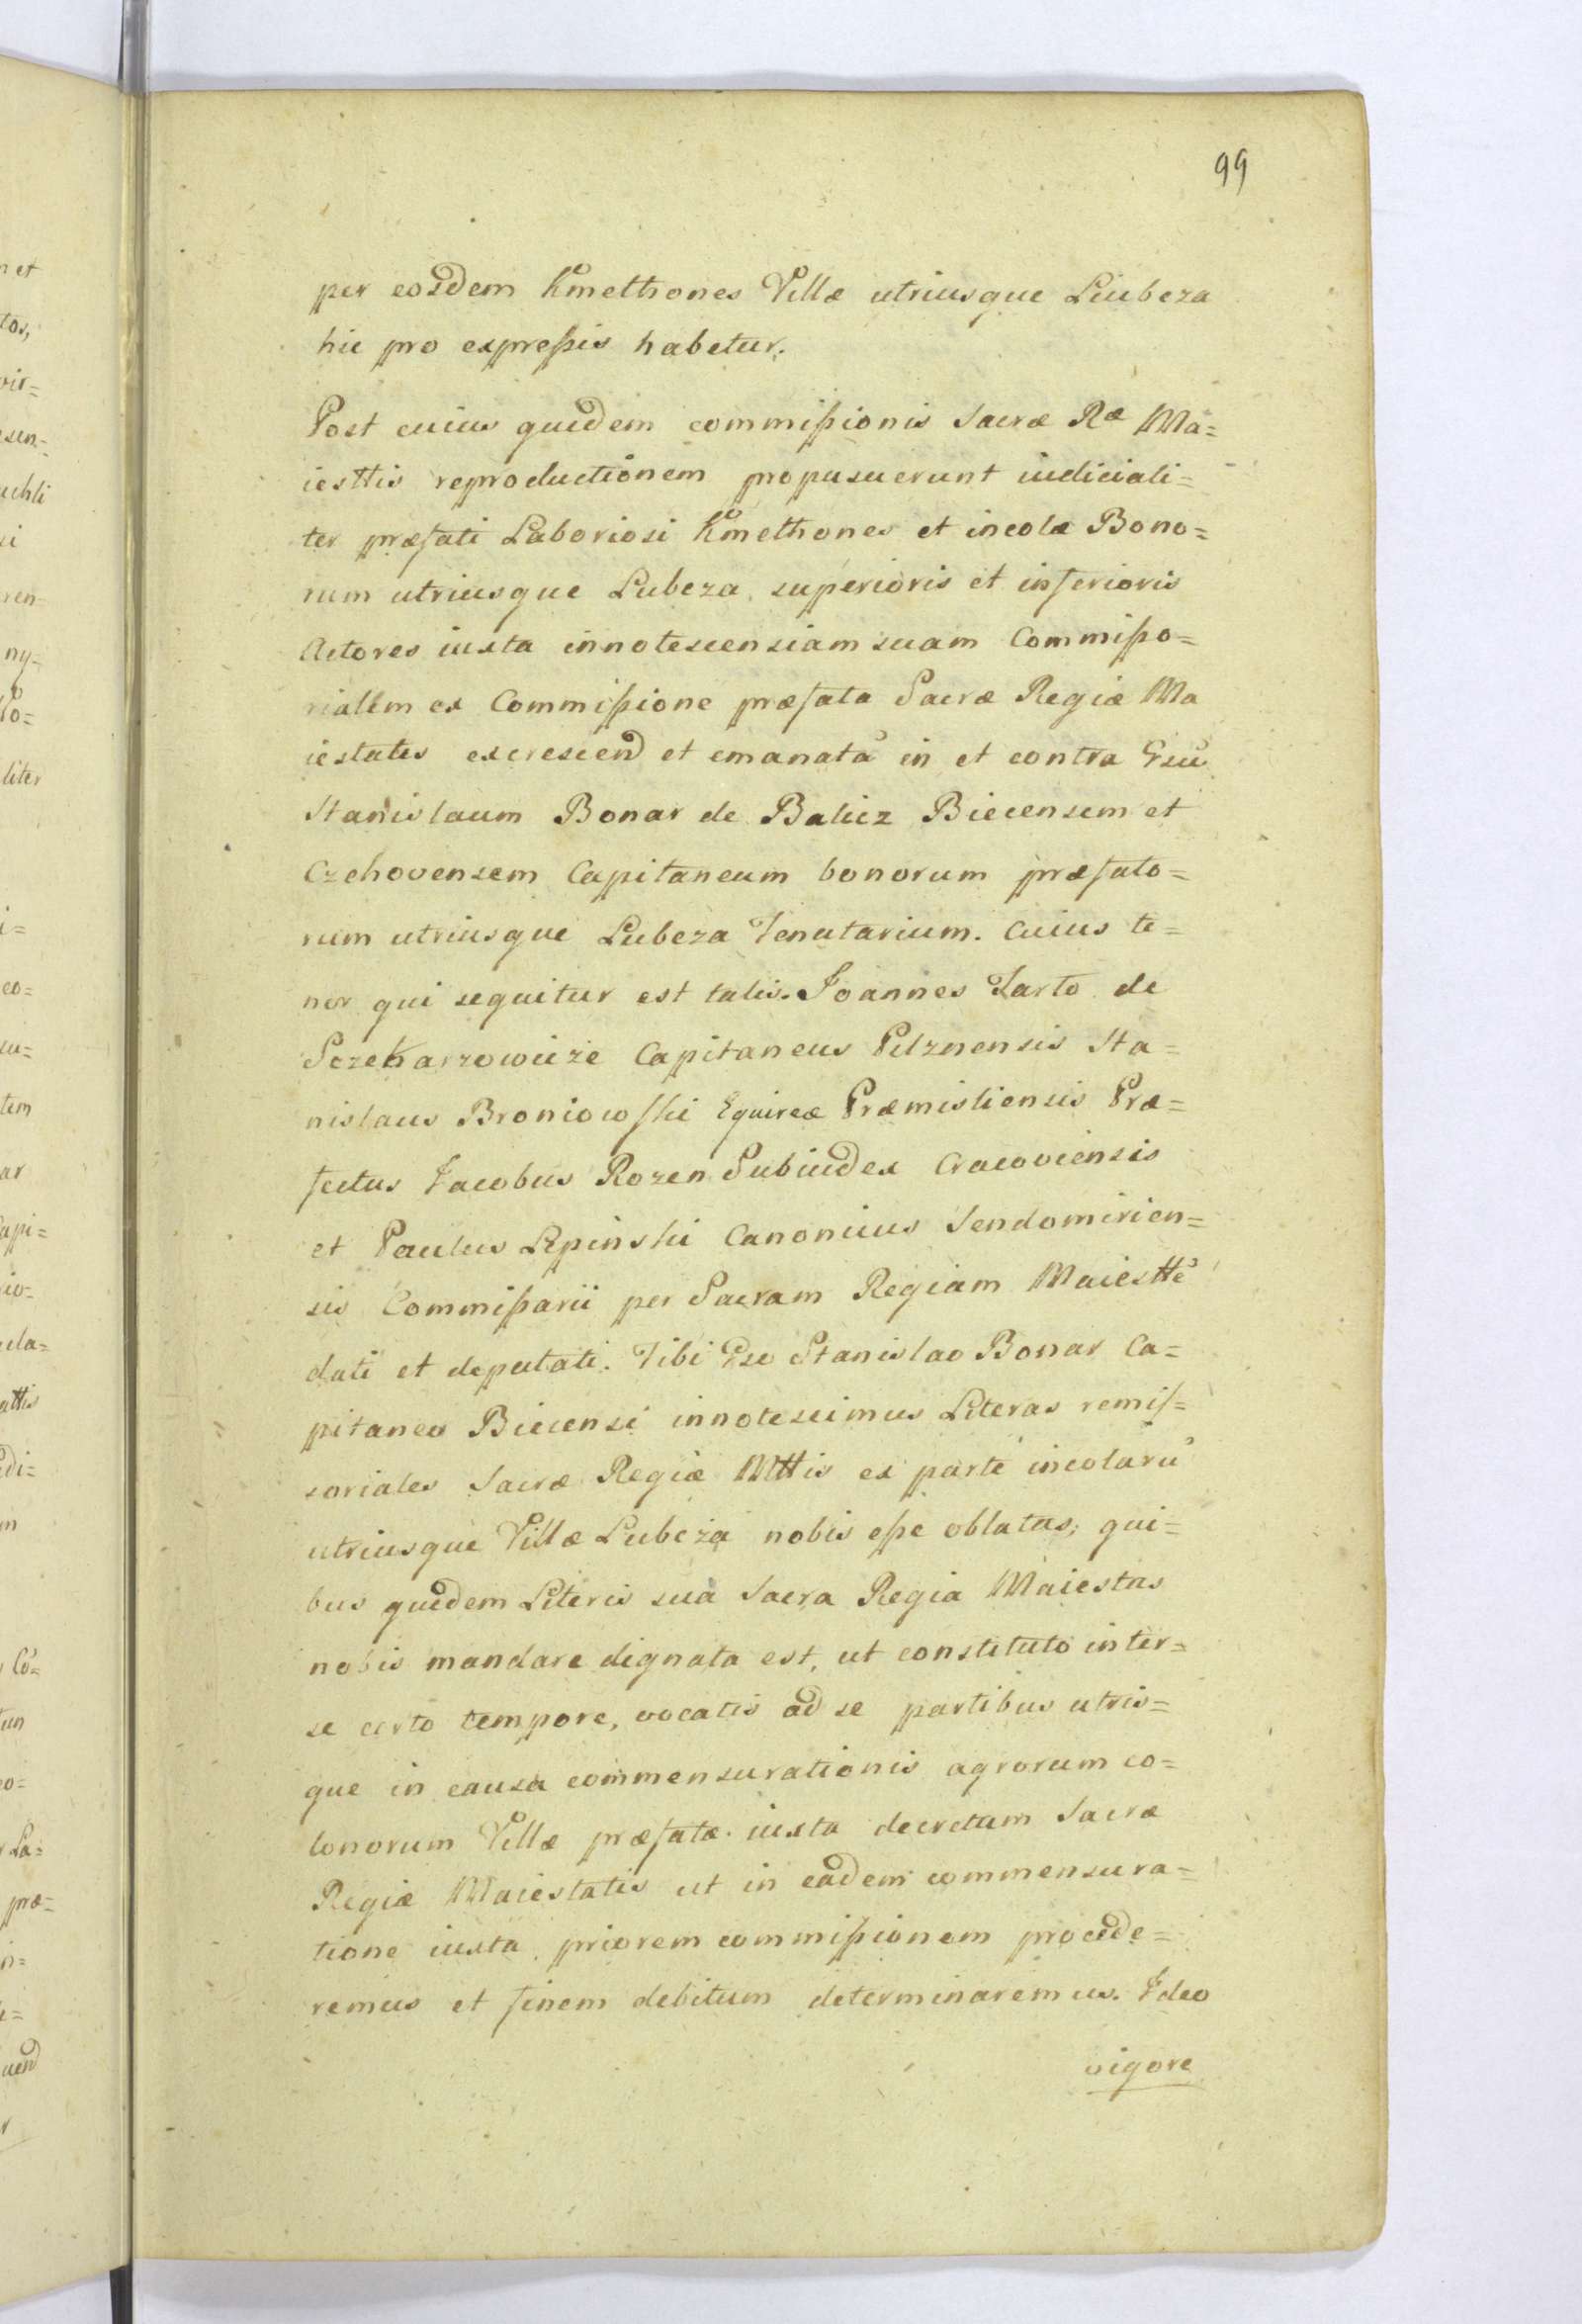 99
per eosdem Kmethones Villæ utriusque Liubcza
hic pro expreßis habetur.
Post cuius quidem commißionis Sacræ Ræ Ma=
iesttis reproductionem propusuerunt iudiciali=
ter præfati Laboriosi Kmethones et incolæ Bono=
rum utriusque Lubcza superioris et inferioris
Actores iuxta innotescensiam suam Commißo=
rialem ex Commißione præfata Sacræ Regiæ Ma
iestatis excrescend et emanatã in et contra Gsũ
Stanislaum Bonar de Balicz Biecensem et
Czchovensem Capitaneum bonorum præfato=
rum utriusque Lubcza Tenutarium. Cuius te=
nor qui sequitur est talis. Joannes Tarlo de
Sczekarzowicze Capitaneus Pilznensis Sta=
nislaus Broniowski Equireæ Præmisliensis Præ=
fectus Jacobus Rozen Subiudex Cracoviensis
et Paulus Lipinski Canonicus Sendomirien=
sis Commißarii per Sacram Regiam Maiesttẽ
dati et deputati. Tibi Gso Stanislao Bonar Ca=
pitaneo Biecensi innotescimus Literas remis=
soriales Sacræ Regiæ Mttis ex parte incolarũ
utriusque Villæ Lubcza nobis eße oblatas, qui=
bus quidem Literis sua Sacra Regia Maiestas
nobis mandare dignata est, ut constituto inter=
se certo tempore, vocatis ad se partibus utris=
que in causa commensurationis agrorum co=
lonorum Villæ præfatæ iuxta decretum Sacræ
Regiæ Maiestatis ut in eadem commensura=
tione iuxta priorem commißionem procede=
remus et finem debitum determinaremus. Ideo
vigore